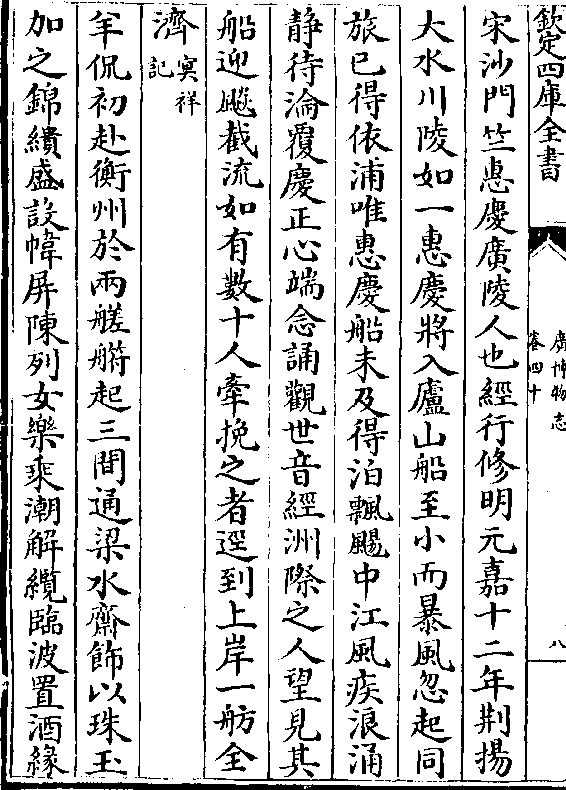 欽定四庫全書
廣博物志
卷四十
八
宋沙門竺惠慶廣陵人也經行修明元嘉十二年荆揚
大水川陵如一惠慶將入廬山船至小而暴風忽起同
旅已得依浦唯惠慶船未及得泊飄颺中江風疾浪涌
静待淪覆慶正心端念誦觀世音經洲際之人望見其
船迎飈截流如有數十人牽挽之者逕到上岸一舫全
濟冥祥記
羊侃初赴衡州於兩艖䑀起三間通梁水齋飾以珠玉
加之錦繢盛設幃屏陳列女樂乘潮解纜臨波置酒緣